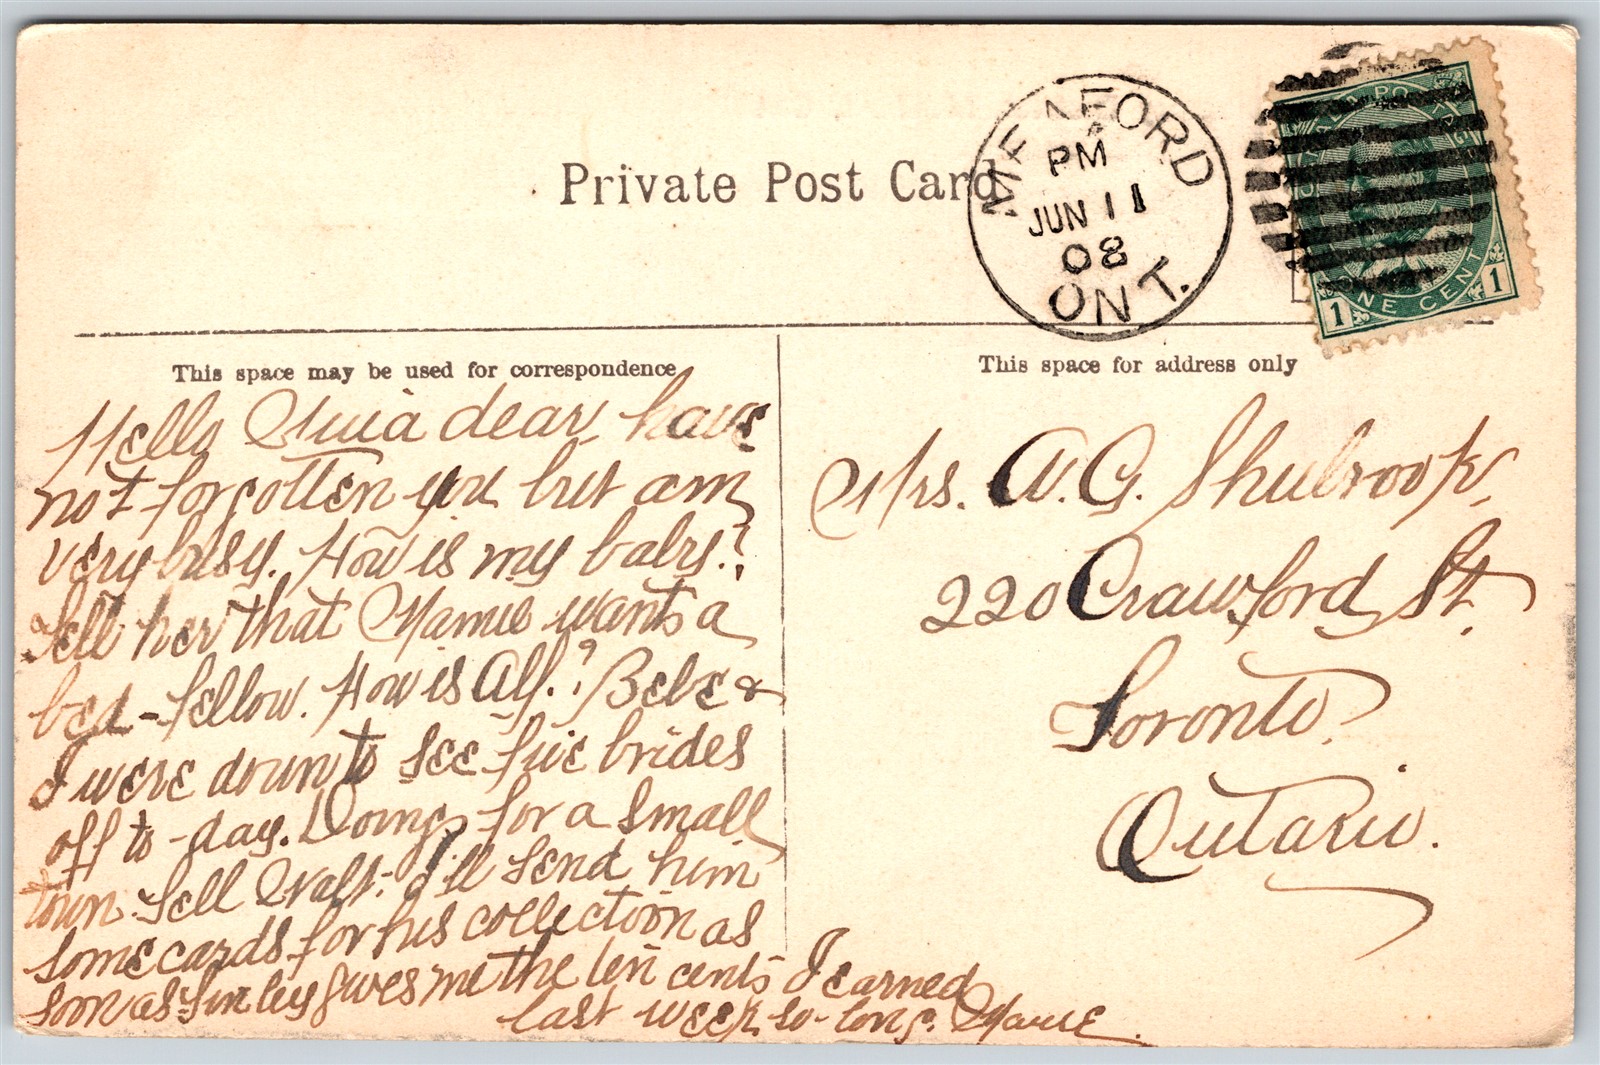 Private Post Card
MEAFORD
PM
JUN 11
08
ONT.
ONE CENT
1 1
This space may be used for correspondence
Hello dear, have
not forgotten you but am
very busy. How is my baby?
Tell her that Mamie wants a
bed-fellow. How is Alf.? Bebe &
I were down to see five brides
off to-day. Doings for a small
town. Tell Walt: I'll send him
some cards for his collection as
soon as gives me the ten cents I earned
last week. So-long. Mamie.
This space for address only
Mrs. W. G. Shubrook,
220 Crawford St.
Toronto,
Ontario.